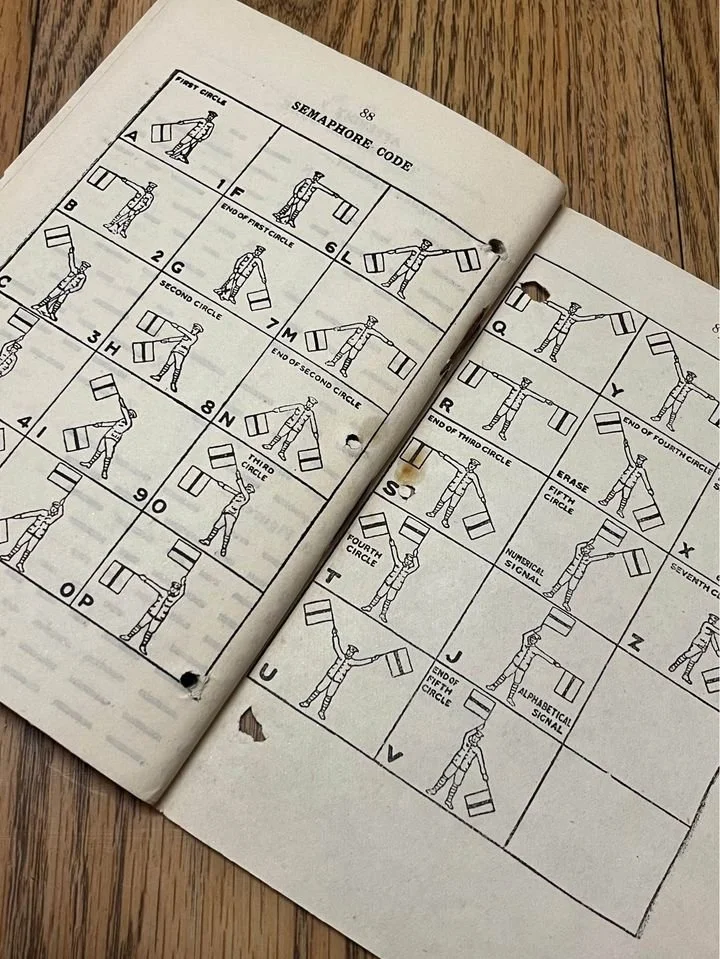 88
SEMAPHORE CODE
FIRST CIRCLE
A 1
F 6
L
B 2
END OF FIRST CIRCLE
G 7
M
C 3
SECOND CIRCLE
H 8
END OF SECOND CIRCLE
N
4
I 9
THIRD
CIRCLE
O
0
P
8
Q
Y
R
END OF FOURTH CIRCLE
ERASE
END OF THIRD CIRCLE
S
FIFTH
CIRCLE
NUMERICAL
SIGNAL
X
FOURTH
CIRCLE
T
J
ALPHABETICAL
SIGNAL
SEVENTH C
Z
U
END OF
FIFTH
CIRCLE
V